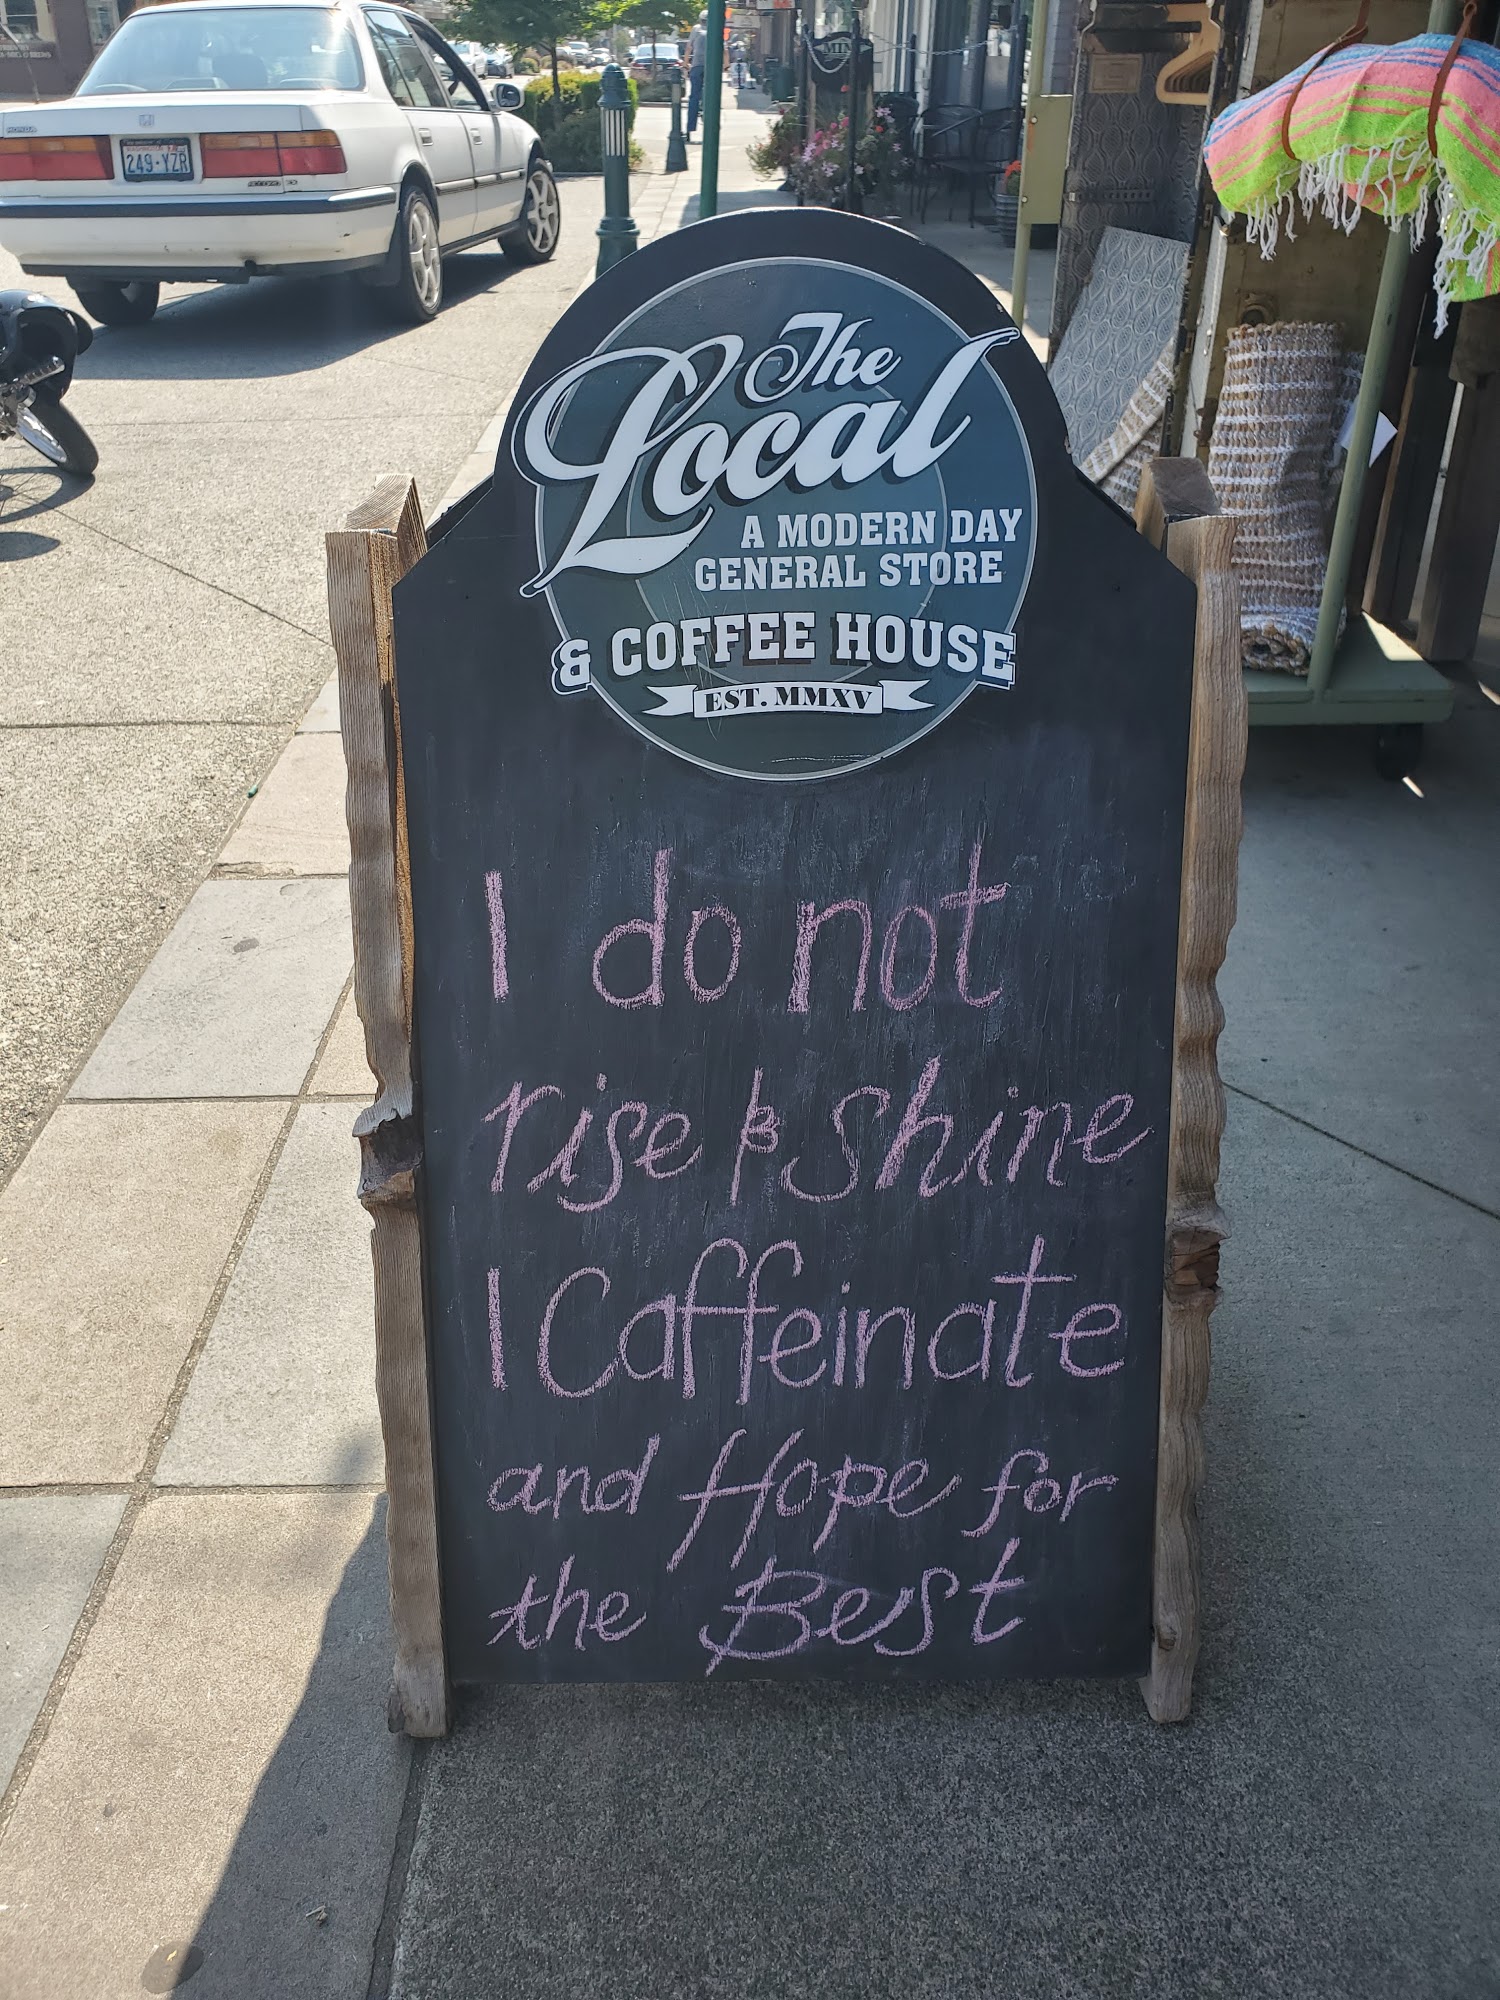 HONDA
249-YZR
The
Local
A MODERN DAY
GENERAL STORE
& COFFEE HOUSE
EST. MMXV
I do not
rise & shine
I Caffeinate
and Hope for
the Best